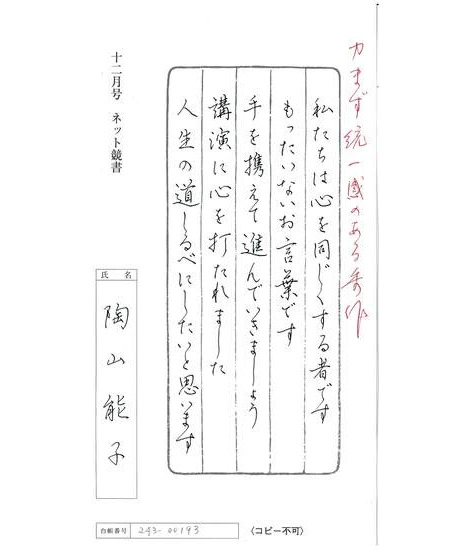 力まず統一感のある秀作
私たちは心を同じくする者です
もったいないお言葉です
手を携えて進んでいきましょう
講演に心を打たれました
人生の道しるべにしたいと思います
十二月号 ネット競書
氏名
陶山能子
台帳番号 243-00193
〈コピー不可〉